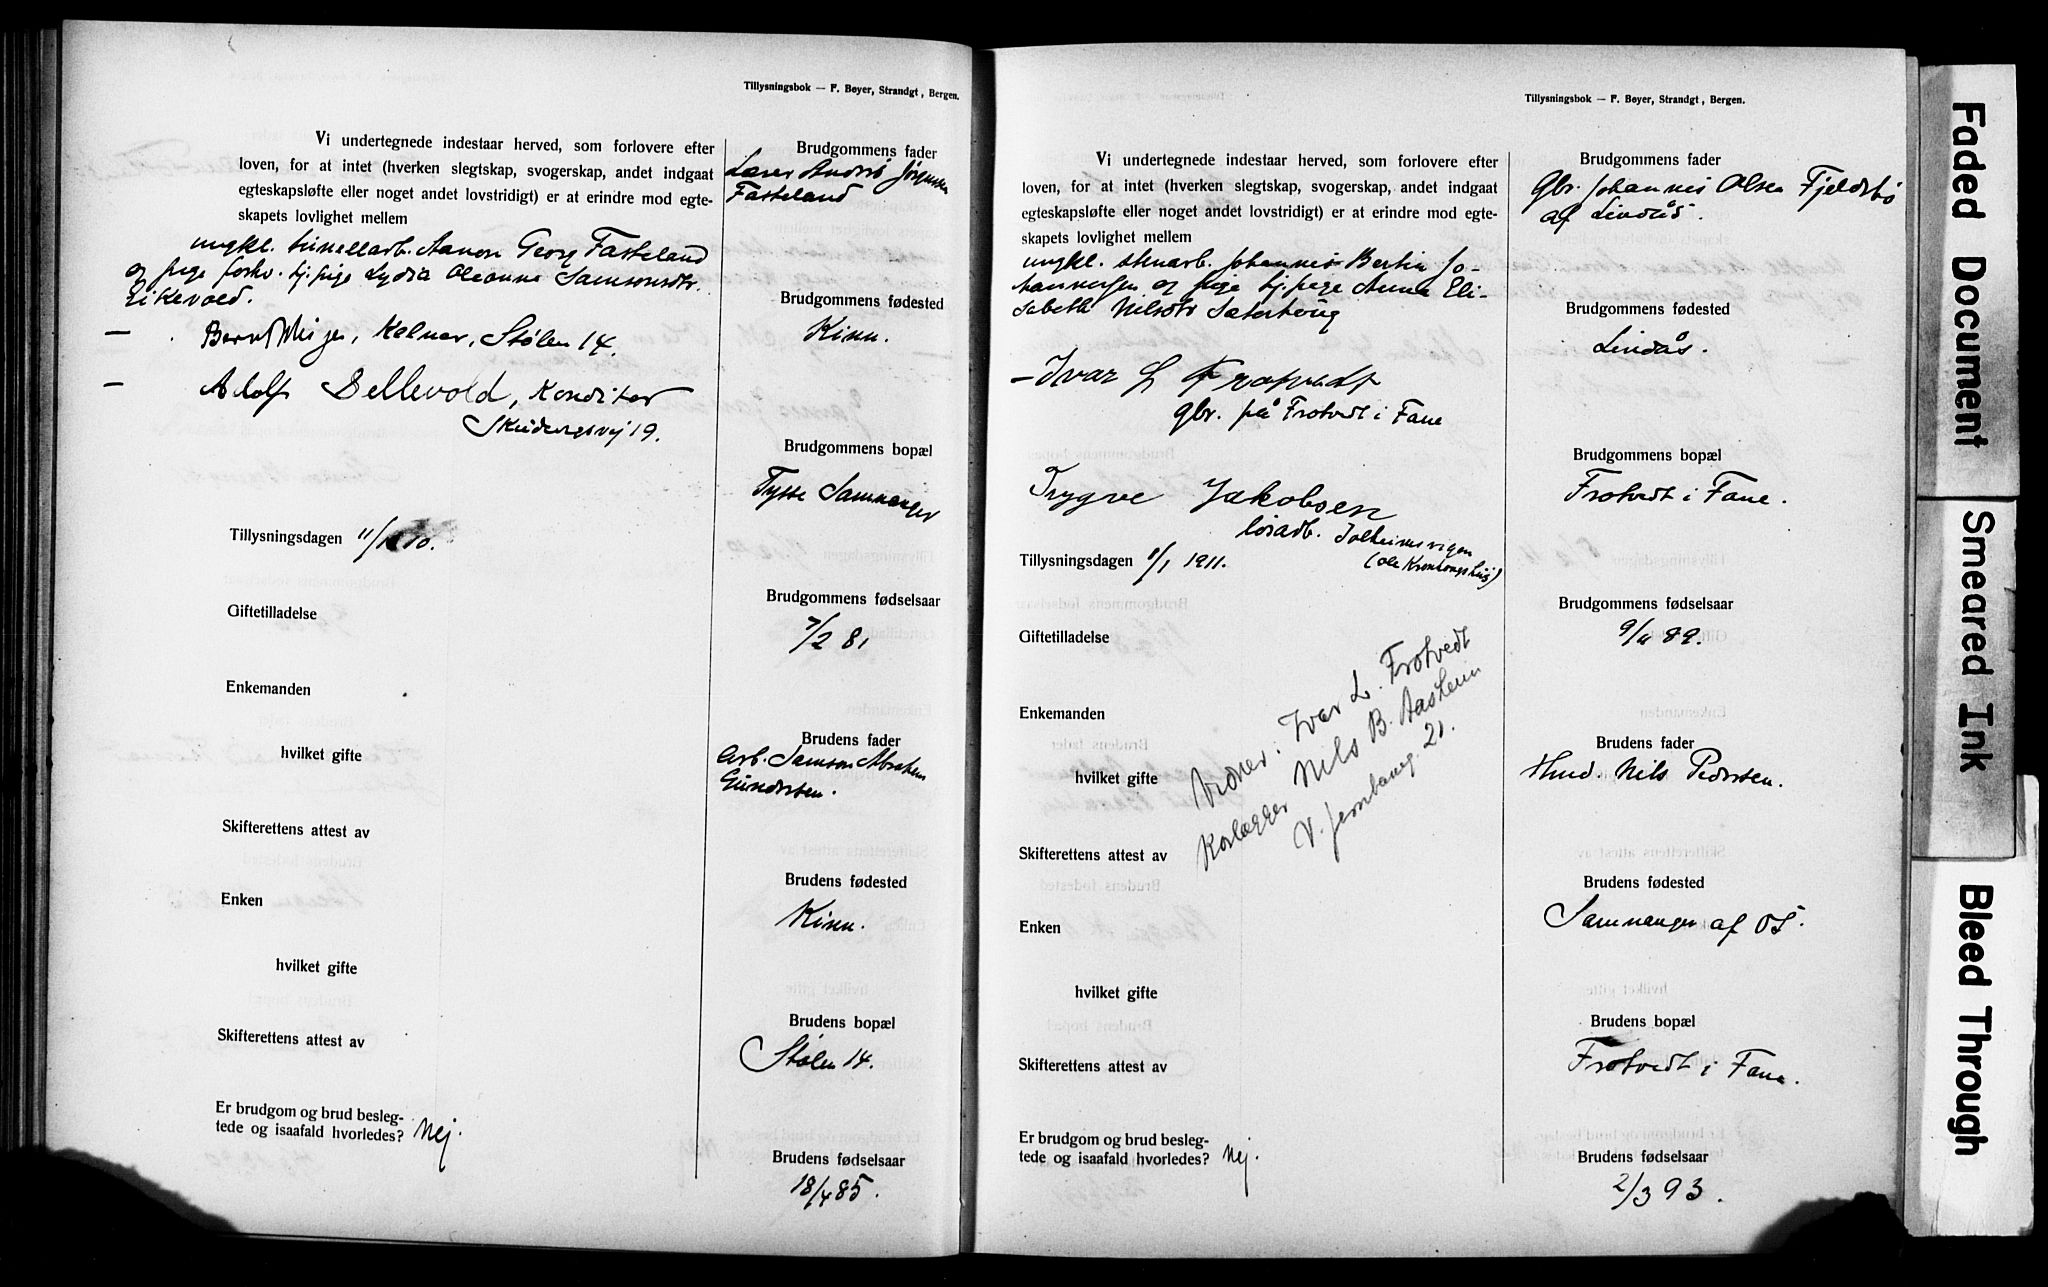 Tillysningsbok — F. Beyer, Strandgt, Bergen.
Vi undertegnede indestaar herved, som forlovere efter
loven, for at intet (hverken slegtskap, svogerskap, andet indgaat
egteskapsløfte eller noget andet lovstridigt) er at erindre mod egte-
skapets lovlighet mellem
ungkl. Georg Fasteland
og pige tj.pige Lydia Oleanna Samsonsdtr.
Eikevold.
Kelner, Stølen 14.
Adolf Sellevold, Konditor
19.
Tillysningsdagen
Giftetilladelse
Enkemanden
hvilket gifte
Skifterettens attest av
Enken
hvilket gifte
Skifterettens attest av
Er brudgom og brud besleg-
tede og isaafald hvorledes? Nej.
Brudgommens fader
Lærer Jørgensen
Fasteland
Brudgommens fødested
Kinn.
Brudgommens bopæl
Tysse Samnanger
Brudgommens fødselsaar
7/2 81
Brudens fader
Arb. Samson Abraham
Gundersen.
Brudens fødested
Kinn.
Brudens bopæl
Stølen 14.
Brudens fødselsaar
18/4 85.
Tillysningsbok — F. Beyer, Strandgt, Bergen.
Vi undertegnede indestaar herved, som forlovere efter
loven, for at intet (hverken slegtskap, svogerskap, andet indgaat
egteskapsløfte eller noget andet lovstridigt) er at erindre mod egte-
skapets lovlighet mellem
ungkl. stenarb. Johannes Bertin Jo-
hannessen og pige tj.pige Anna Eli-
sabeth Nilsdtr
— Ivar L Frotvedt
gbr. på Frotvedt i Fane
Trygve Jakobsen
løsarb. Solheimsvigen
Tillysningsdagen 8/1 1911.
Giftetilladelse
Enkemanden
hvilket gifte
Vidner: Ivar L. Frotvedt
Nils B. Aasheim
V. Jernbaneg. 21.
Skifterettens attest av
Enken
hvilket gifte
Skifterettens attest av
Er brudgom og brud besleg-
tede og isaafald hvorledes? Nej.
Brudgommens fader
Gbr. Johannes Olsen Fjeldsbø
af Lindås.
Brudgommens fødested
Lindås.
Brudgommens bopæl
Frotvedt i Fane.
Brudgommens fødselsaar
9/11 89.
Brudens fader
Hmd. Nils Pedersen.
Brudens fødested
Samnanger af Os.
Brudens bopæl
Frotvedt i Fane.
Brudens fødselsaar
2/3 93.
Faded Document
Smeared Ink
Bleed Through